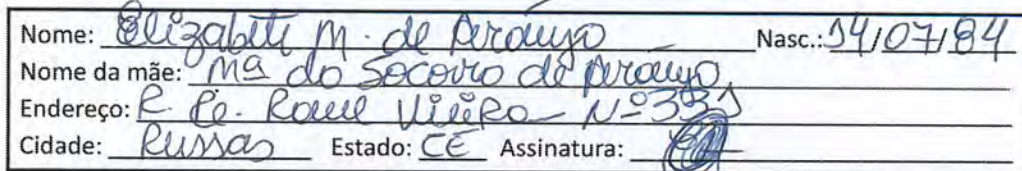 Nome: Elizabete M. de Araujo Nasc.: 14/07/84
Nome da mãe: Mª do Socorro de Araujo
Endereço: R. Pe. Raul Vieira - Nº 331
Cidade: Russas Estado: CE Assinatura: